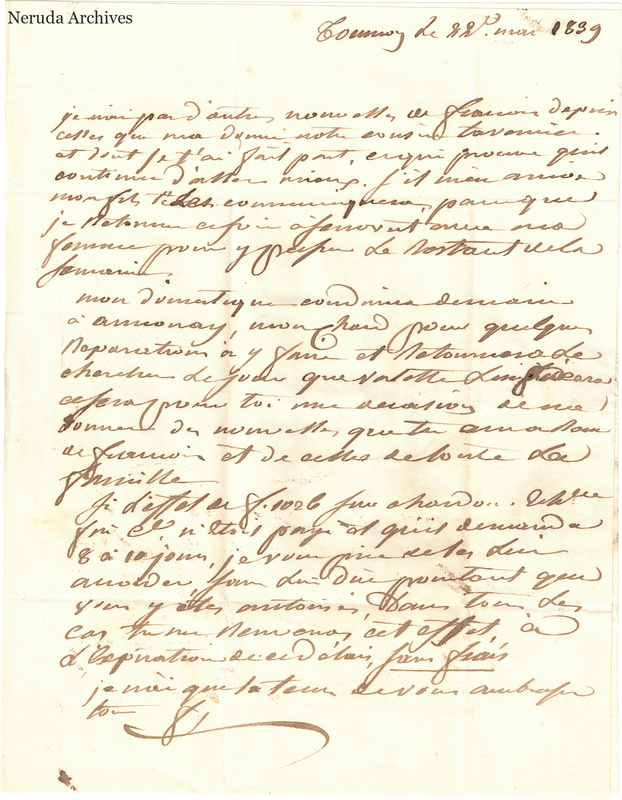 Neruda Archives
Tournon le 22 mai 1839
je n'ai pas d'autres nouvelles de francois depuis
celles que m'a donné notre cousin tavernier
et dont je t'ai fait part, ce qui prouve qu'il
continue d'aller mieux. s'il m'en arrive
mon fils te les communiquera, parce que
je retourne ce soir à avec ma
femme pour y passer le restant de la
semaine
mon domestique conduira demain
à annonay, mon char pour quelques
Reparations à y faire et Retournera le
chercher le jour que valette lui
ce sera pour toi une occasion de me
donner des nouvelles que tu auras
de francois et de celles de toute la
famille
Si l'effet de f. 1026 sur chardon
n'étoit payé et qu'il demanda
8 à 10 jours, je vous prie de les lui
accorder, sans lui dire pourtant que
vous y êtes autorisés, Dans tous les
cas tu me Renverras cet effet à
l'Expiration de ces délais, sans frais
je n'ai que le tems de vous embrasser
tous